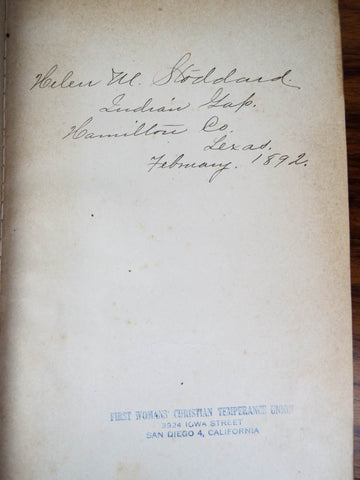 Helen M. Stoddard.
Indian Gap.
Hamilton Co.
Texas.
February. 1892.
FIRST WOMANS' CHRISTIAN TEMPERANCE UNION
3924 IOWA STREET
SAN DIEGO 4, CALIFORNIA